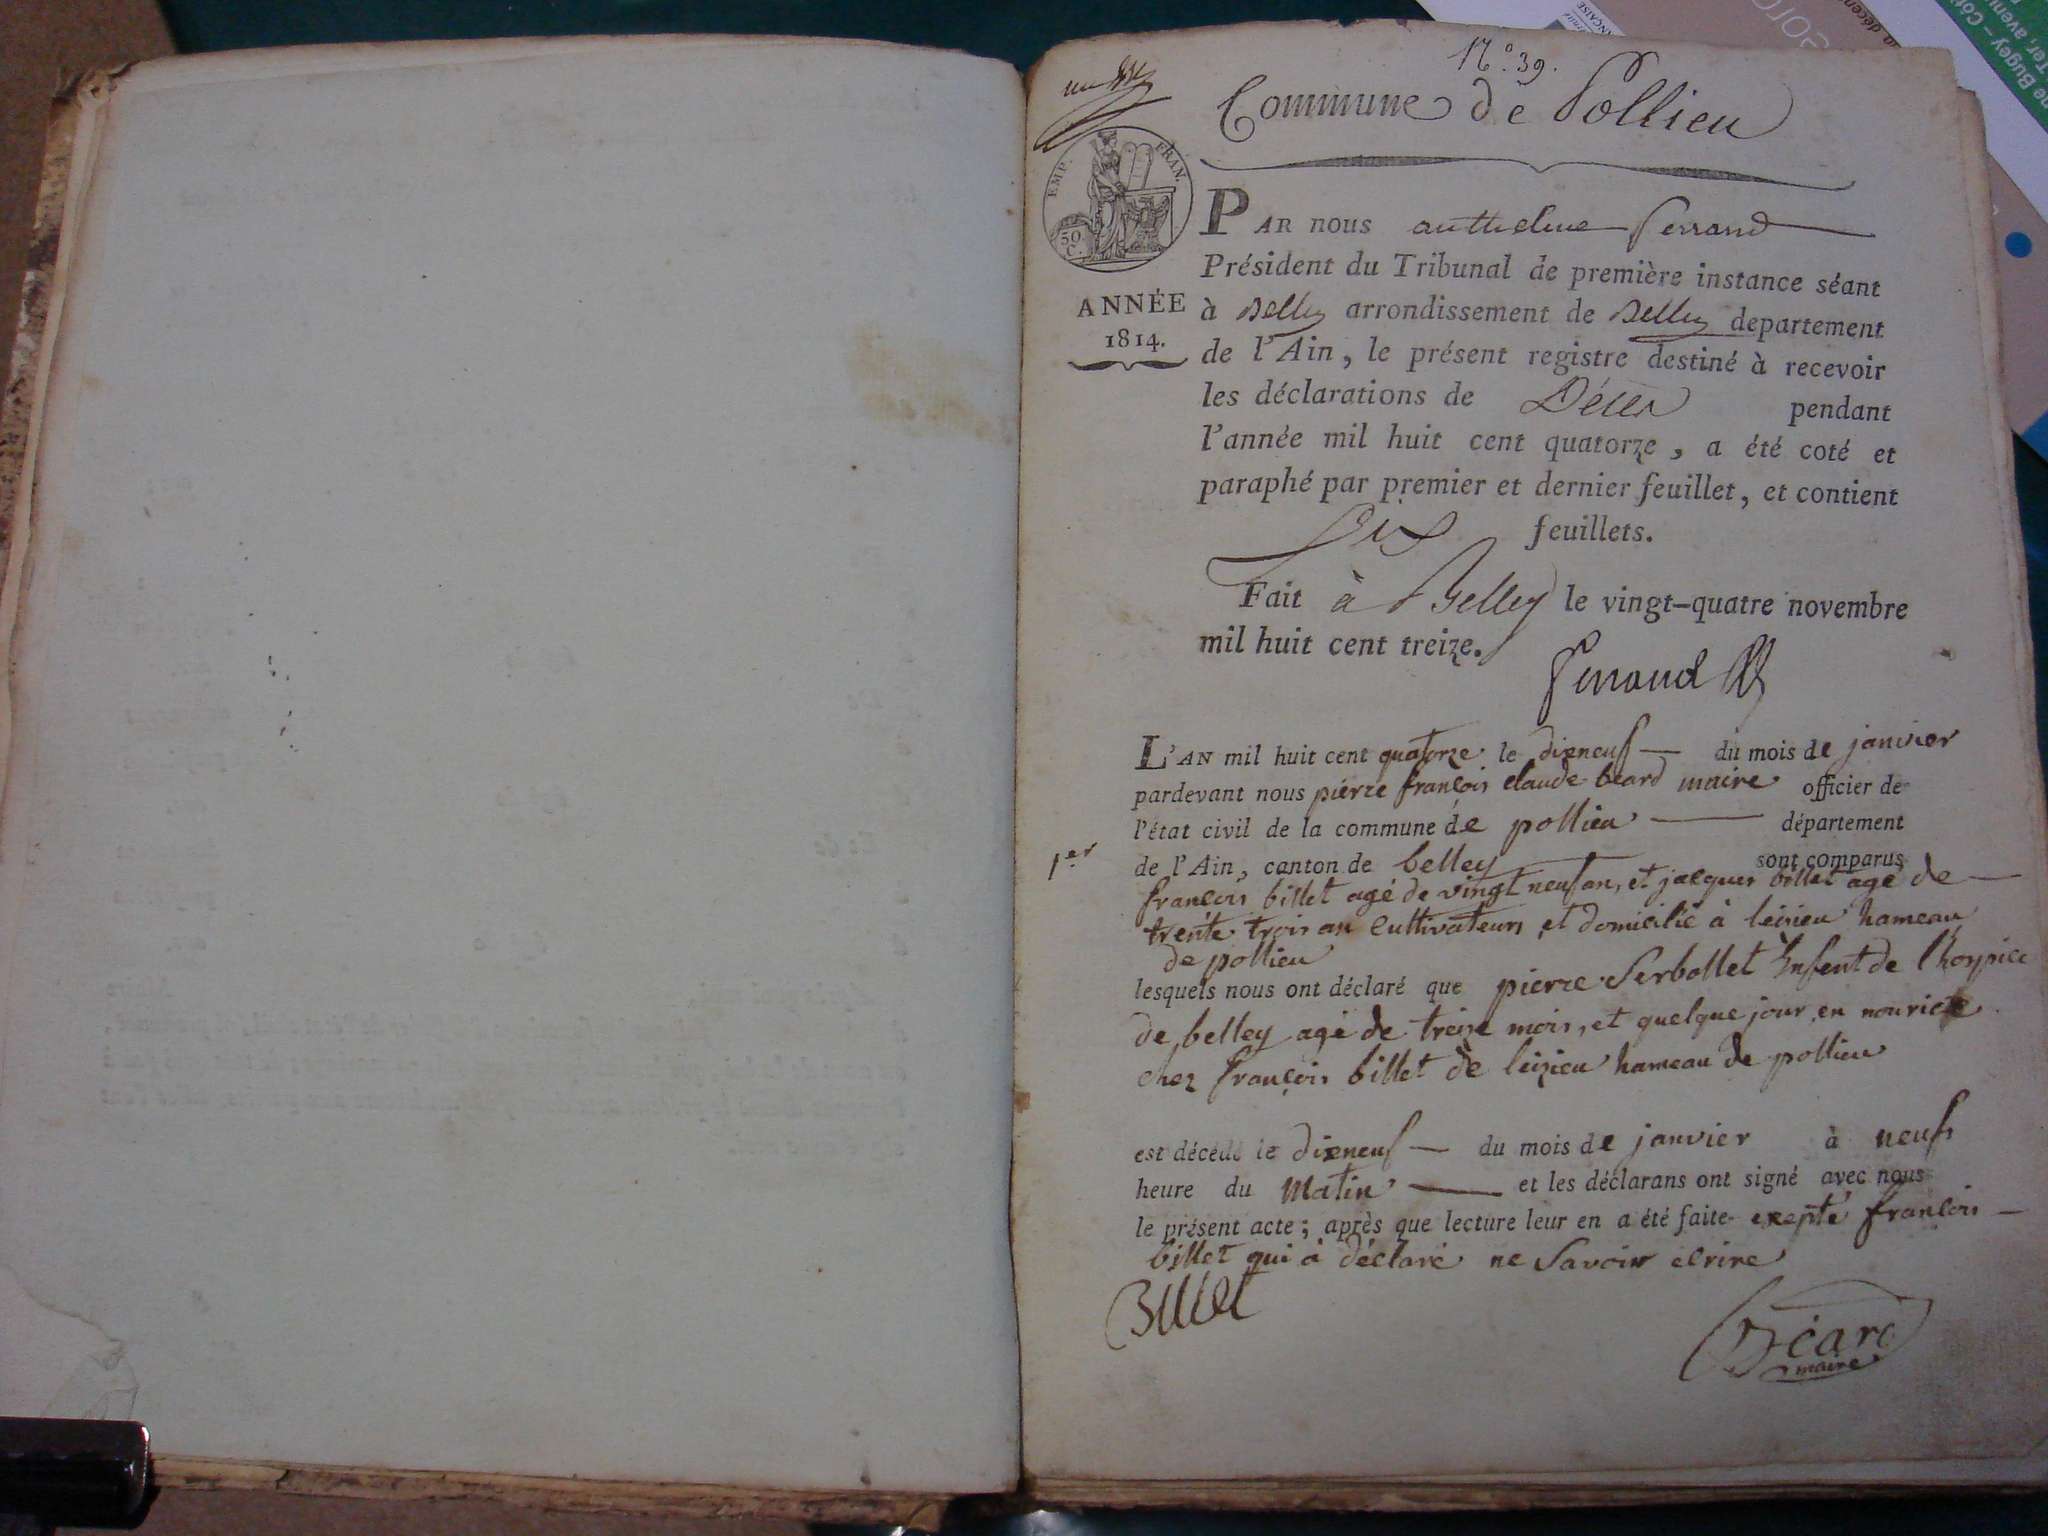 N.° 39.
Commune de Pollieu
EMP. FRAN.
50 C.
ANNÉE
1814.
PAR nous anthelme Ferrand
Président du Tribunal de première instance séant
à Belley arrondissement de Belley departement
de l'Ain, le présent registre destiné à recevoir
les déclarations de Décès pendant
l'année mil huit cent quatorze, a été coté et
paraphé par premier et dernier feuillet, et contient
Six feuillets.
Fait à Belley le vingt-quatre novembre
mil huit cent treize.
Ferrand
L'AN mil huit cent quatorze le dixneuf du mois de janvier
pardevant nous pierre françois claude béard maire officier de
l'état civil de la commune de pollieu département
1.er
de l'Ain, canton de belley sont comparus
françois billet agé de vingt neuf an, et jacques billet agé de
trente trois an cultivateurs et domicilié à leizieu hameau
de pollieu
lesquels nous ont déclaré que pierre Serbollet Enfent de l'hospice
de belley agé de treize mois, et quelque jour en nourice
chez françois billet de leizieu hameau de pollieu
est décédé le dixneuf du mois de janvier à neuf
heure du matin et les déclarans ont signé avec nous
le présent acte; après que lecture leur en a été faite exepté françois
billet qui à déclaré ne savoir ecrire
Billet
Béard
maire